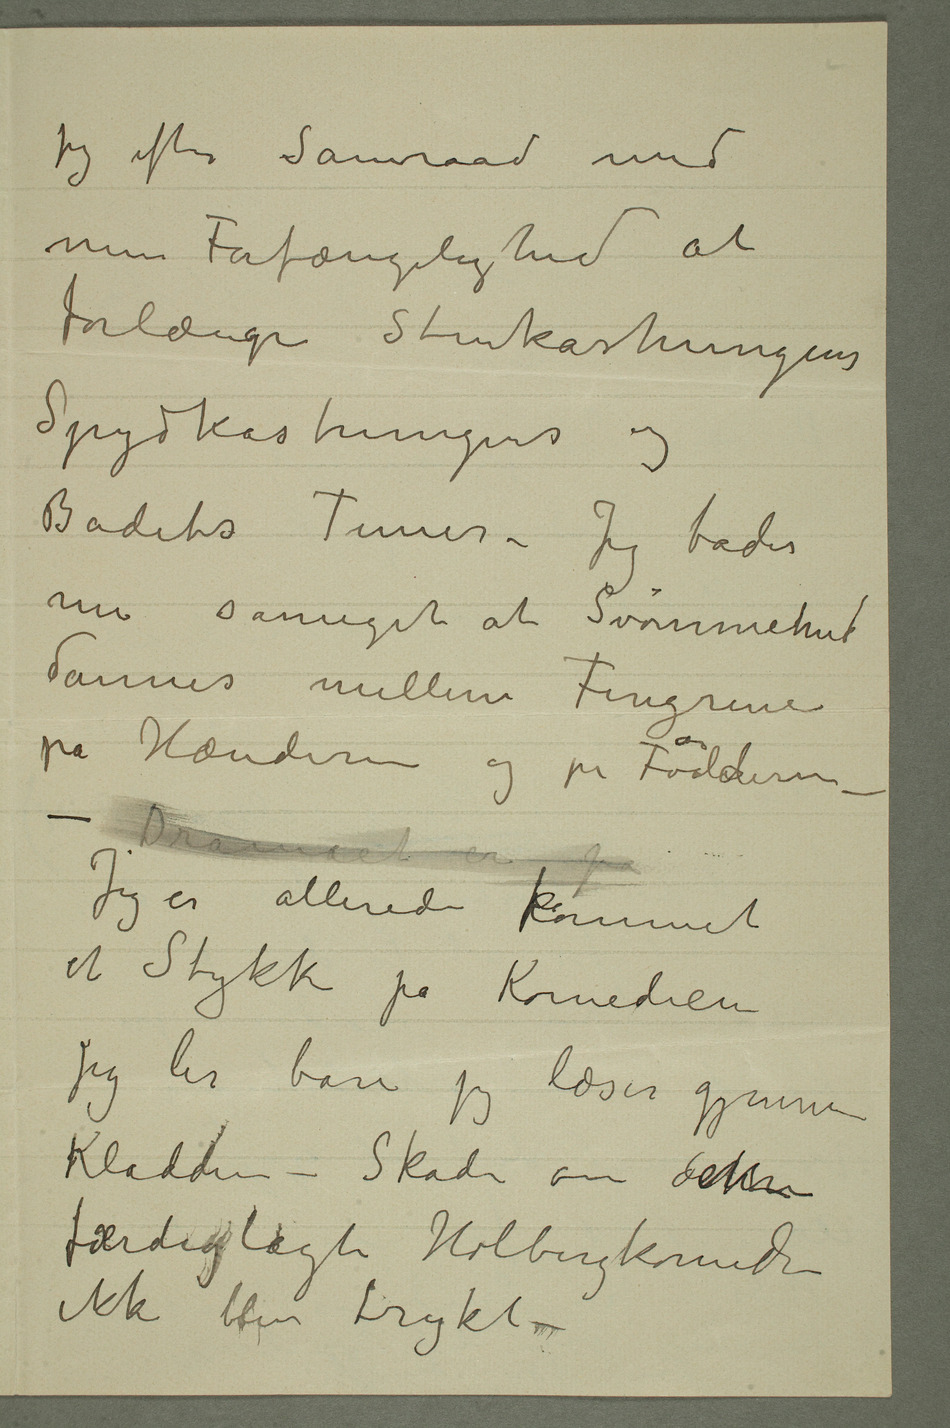 jeg efter Samraad med
min Forfængelighed at
forlænge Stenkastningens
Spydkastningens og
Badets Timer – Jeg bader
nu sameget at Svömmehud
dannes mellem Fingrene
på Hænderne og på Födderne –
– Dramaet er på
Jeg er allerede kommet
et Stykke på Komedien
Jeg ler bare jeg læser gjennem
Kladden – Skade om denne
færdiglagte Holbergkomedie
ikke blev trykt –